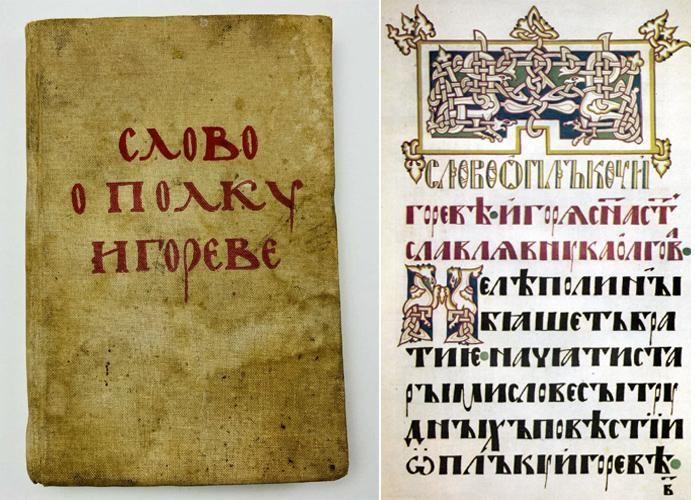 СЛОВО
О ПОЛКУ
ИГОРЕВЕ
СЛОВОѠПЛЪКОУИ
ГОРЕВѢ·ИГОРѦСН҃АСТ҃
СЛАВЛѦВНꙊКАОЛГОВ·
НЕЛѢПОЛИНЫ
БꙖШЕТЬБРА
ТИѤ·НАЧꙖТИСТА
РЫМИСЛОВЕСЫТРꙊ
ДНЫХЪПОВѢСТІИ
ѠПЛЪКꙊИГОРЕВѢ·
В҃